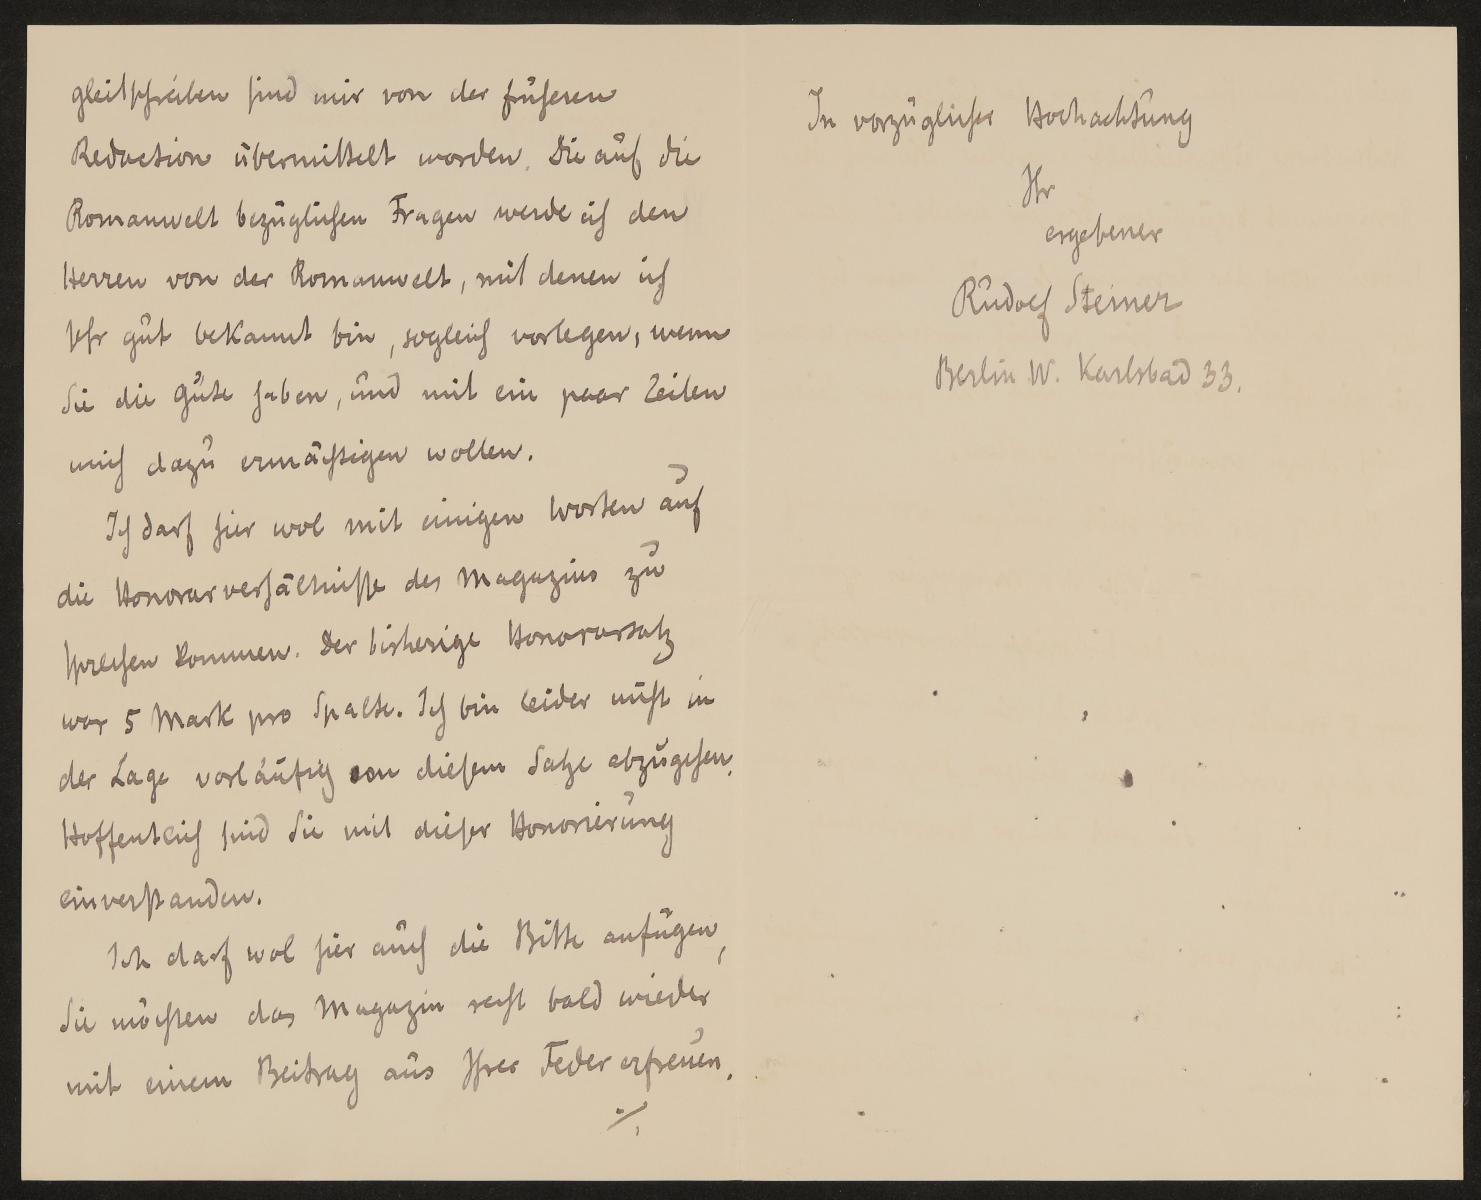 gleitschreiben sind mir von der früheren
Redaction übermittelt worden. Die auf die
Romanwelt bezüglichen Fragen werde ich den
Herren von der Romanwelt, mit denen ich
sehr gut bekannt bin, sogleich vorlegen, wenn
Sie die Güte haben, und mit ein paar Zeilen
mich dazu ermächtigen wollen.
Ich darf hier wol mit einigen Worten auf
die Honorarverhältnisse des Magazins zu
sprechen kommen. Der bisherige Honorarsatz
war 5 Mark pro Spalte. Ich bin leider nicht in
der Lage vorläufig von diesem Satze abzugehen.
Hoffentlich sind Sie mit dieser Honorierung
einverstanden.
Ich darf wol hier auch die Bitte anfügen,
Sie möchten das Magazin recht bald wieder
mit einem Beitrag aus Ihrer Feder erfreuen.
./.
In vorzüglicher Hochachtung
Ihr
ergebener
Rudolf Steiner
Berlin W. Karlsbad 33.